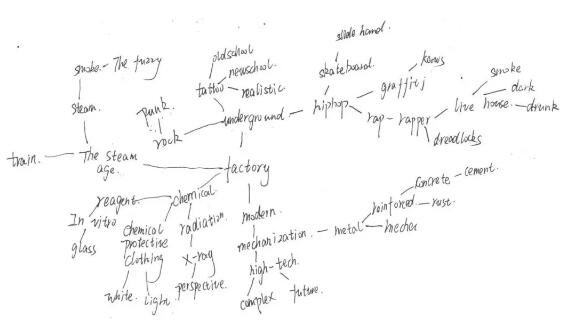 slide hand.
smoke - The fuzzy
oldschool
newschool.
tattoo
realistic
skateboard.
kaws
graffiti
smoke
dark
steam.
punk.
rock
underground
hiphop
rap - rapper
live house.
drunk
dreadlocks
train.
The steam age.
factory
reagent
chemical
In vitro
glass
chemical protective clothing
radiation.
X-ray
perspective.
white.
light
modern.
mechanization.
metal
reinforced
concrete - cement.
rust.
mecha
high-tech.
complex
future.